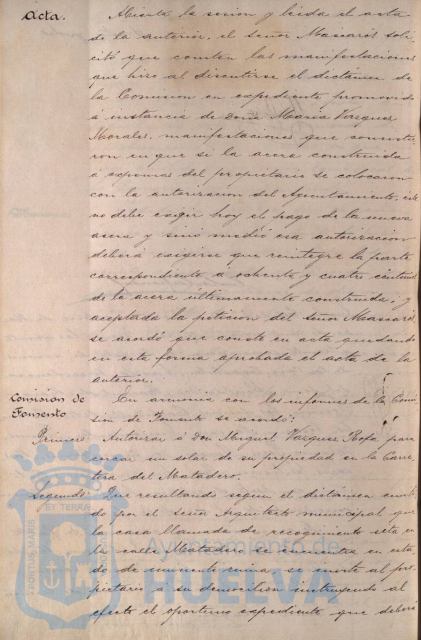 Acta.
Abierta la sesión y leida el acta
de la anterior, el señor Mascarós soli-
citó que consten las manifestaciones
que hizo al discutirse el dictámen de
la Comision en expediente promovido
á instancia de Doña Maria Vazquez
Morales, manifestaciones que consistie-
ron en que si la acera construida
á espensas del propietario se colocaron
con la autorizacion del Ayuntamiento, este
no debe exigir hoy el pago de la nueva
acera y sinó medió esa autorizacion
deberá exigirse que reintegre la parte
correspondiente á ochenta y cuatro
de la acera últimamente construida; y
aceptada la peticion del señor Mascarós
se acordó que conste en acta quedando
en esta forma aprobada el acta de la
anterior.
Comision de
Fomento
En armonia con los informes de la Comi-
sion de Fomento se acordó:
Primero Autorizar á Don Miguel Vázquez para
cercar un solar de su propiedad en la Carre-
tera del Matadero.
Segundo Que resultando segun el dictámen emiti-
do por el señor Arquitecto municipal que
la casa llamada de recogimiento sita en
la calle Matadero se encuentra en esta-
do de inminente ruina, se invite al pro-
pietario á su demolicion instruyendo al
efecto el oportuno expediente que deberá
PORTUS MARIS
ET TERRAE
Ayuntamiento de
HUELVA